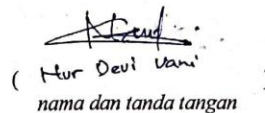 ( Nur Devi Vani )
nama dan tanda tangan